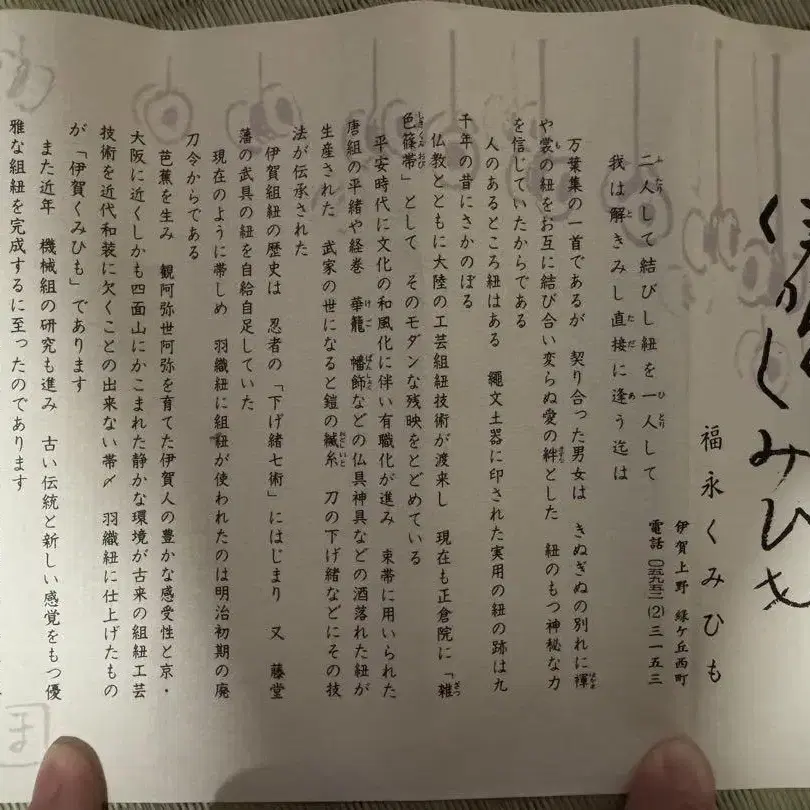 伊賀くみひも
福永くみひも
伊賀上野 緑ケ丘西町
電話 〇五九五二(2)三一五三
二人して結びし紐を一人して
我は解きみし直接に逢う迄は
万葉集の一首であるが 契り合った男女は きぬぎぬの別れに褌
や裳の紐をお互に結び合い変らぬ愛の絆とした 紐のもつ神秘な力
を信じていたからである
人のあるところ紐はある 繩文土器に印された実用の紐の跡は九
千年の昔にさかのぼる
仏教とともに大陸の工芸組紐技術が渡来し 現在も正倉院に「雑
色篠帯」として そのモダンな残映をとどめている
平安時代に文化の和風化に伴い有職化が進み 束帯に用いられた
唐組の平緒や経巻 華籠 幡飾などの仏具神具などの洒落れた紐が
生産された 武家の世になると鎧の縅糸 刀の下げ緒などにその技
法が伝承された
伊賀組紐の歴史は 忍者の「下げ緒七術」にはじまり 又 藤堂
藩の武具の紐を自給自足していた
現在のように帯しめ 羽織紐に組紐が使われたのは明治初期の廃
刀令からである
芭蕉を生み 観阿弥世阿弥を育てた伊賀人の豊かな感受性と京・
大阪に近くしかも四面山にかこまれた静かな環境が古来の組紐工芸
技術を近代和装に欠くことの出来ない帯〆 羽織紐に仕上げたもの
が「伊賀くみひも」であります
また近年 機械組の研究も進み 古い伝統と新しい感覚をもつ優
雅な組紐を完成するに至ったのであります